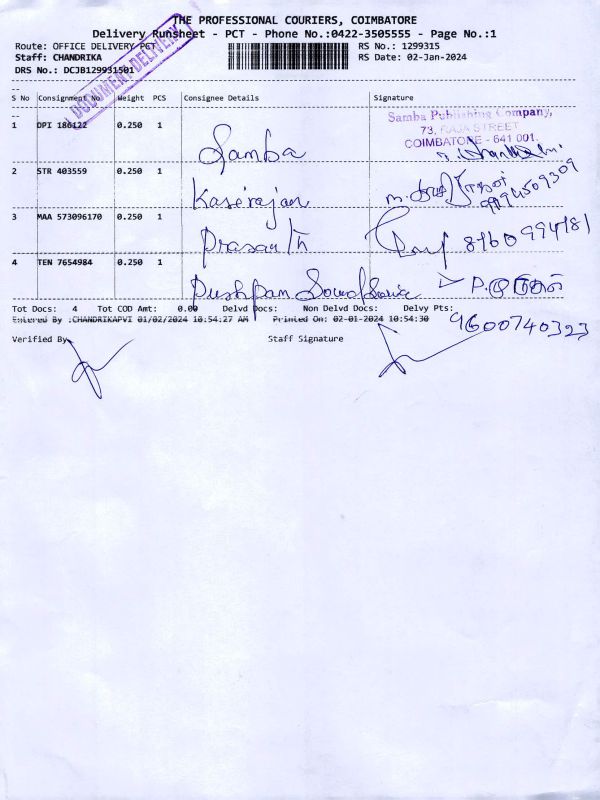 THE PROFESSIONAL COURIERS, COIMBATORE
Delivery Runsheet - PCT - Phone No.:0422-3505555 - Page No.:1
Route: OFFICE DELIVERY PCT
RS No.: 1299315
Staff: CHANDRIKA
RS Date: 02-Jan-2024
DRS No.: DCJB129931501
DOCUMENT DELIVERY
S No Consignment No Weight PCS Consignee Details Signature
1 DPI 186122 0.250 1 Samba
Samba Publishing Company,
73, RAJA STREET
COIMBATORE - 641 001.
2 STR 403559 0.250 1 Kasirajan
9194509309
3 MAA 573096170 0.250 1 Prasanth
8760994181
4 TEN 7654984 0.250 1 Pushpam
Tot Docs: 4 Tot COD Amt: 0.00 Delvd Docs: Non Delvd Docs: Delvy Pts:
Entered By :CHANDRIKAPVI 01/02/2024 10:54:27 AM Printed On: 02-01-2024 10:54:30
9600740323
Verified By Staff Signature